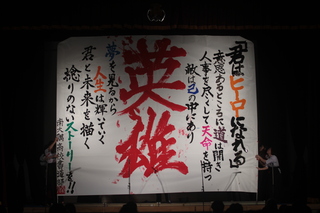 「君はヒーローになれる」
意志あるところに道は開き
人事を尽くして天命を待つ
敵は己の中にあり
英雄
夢を見るから
人生は輝いていく
君と未来を描く
捻りのないストーリーを!!